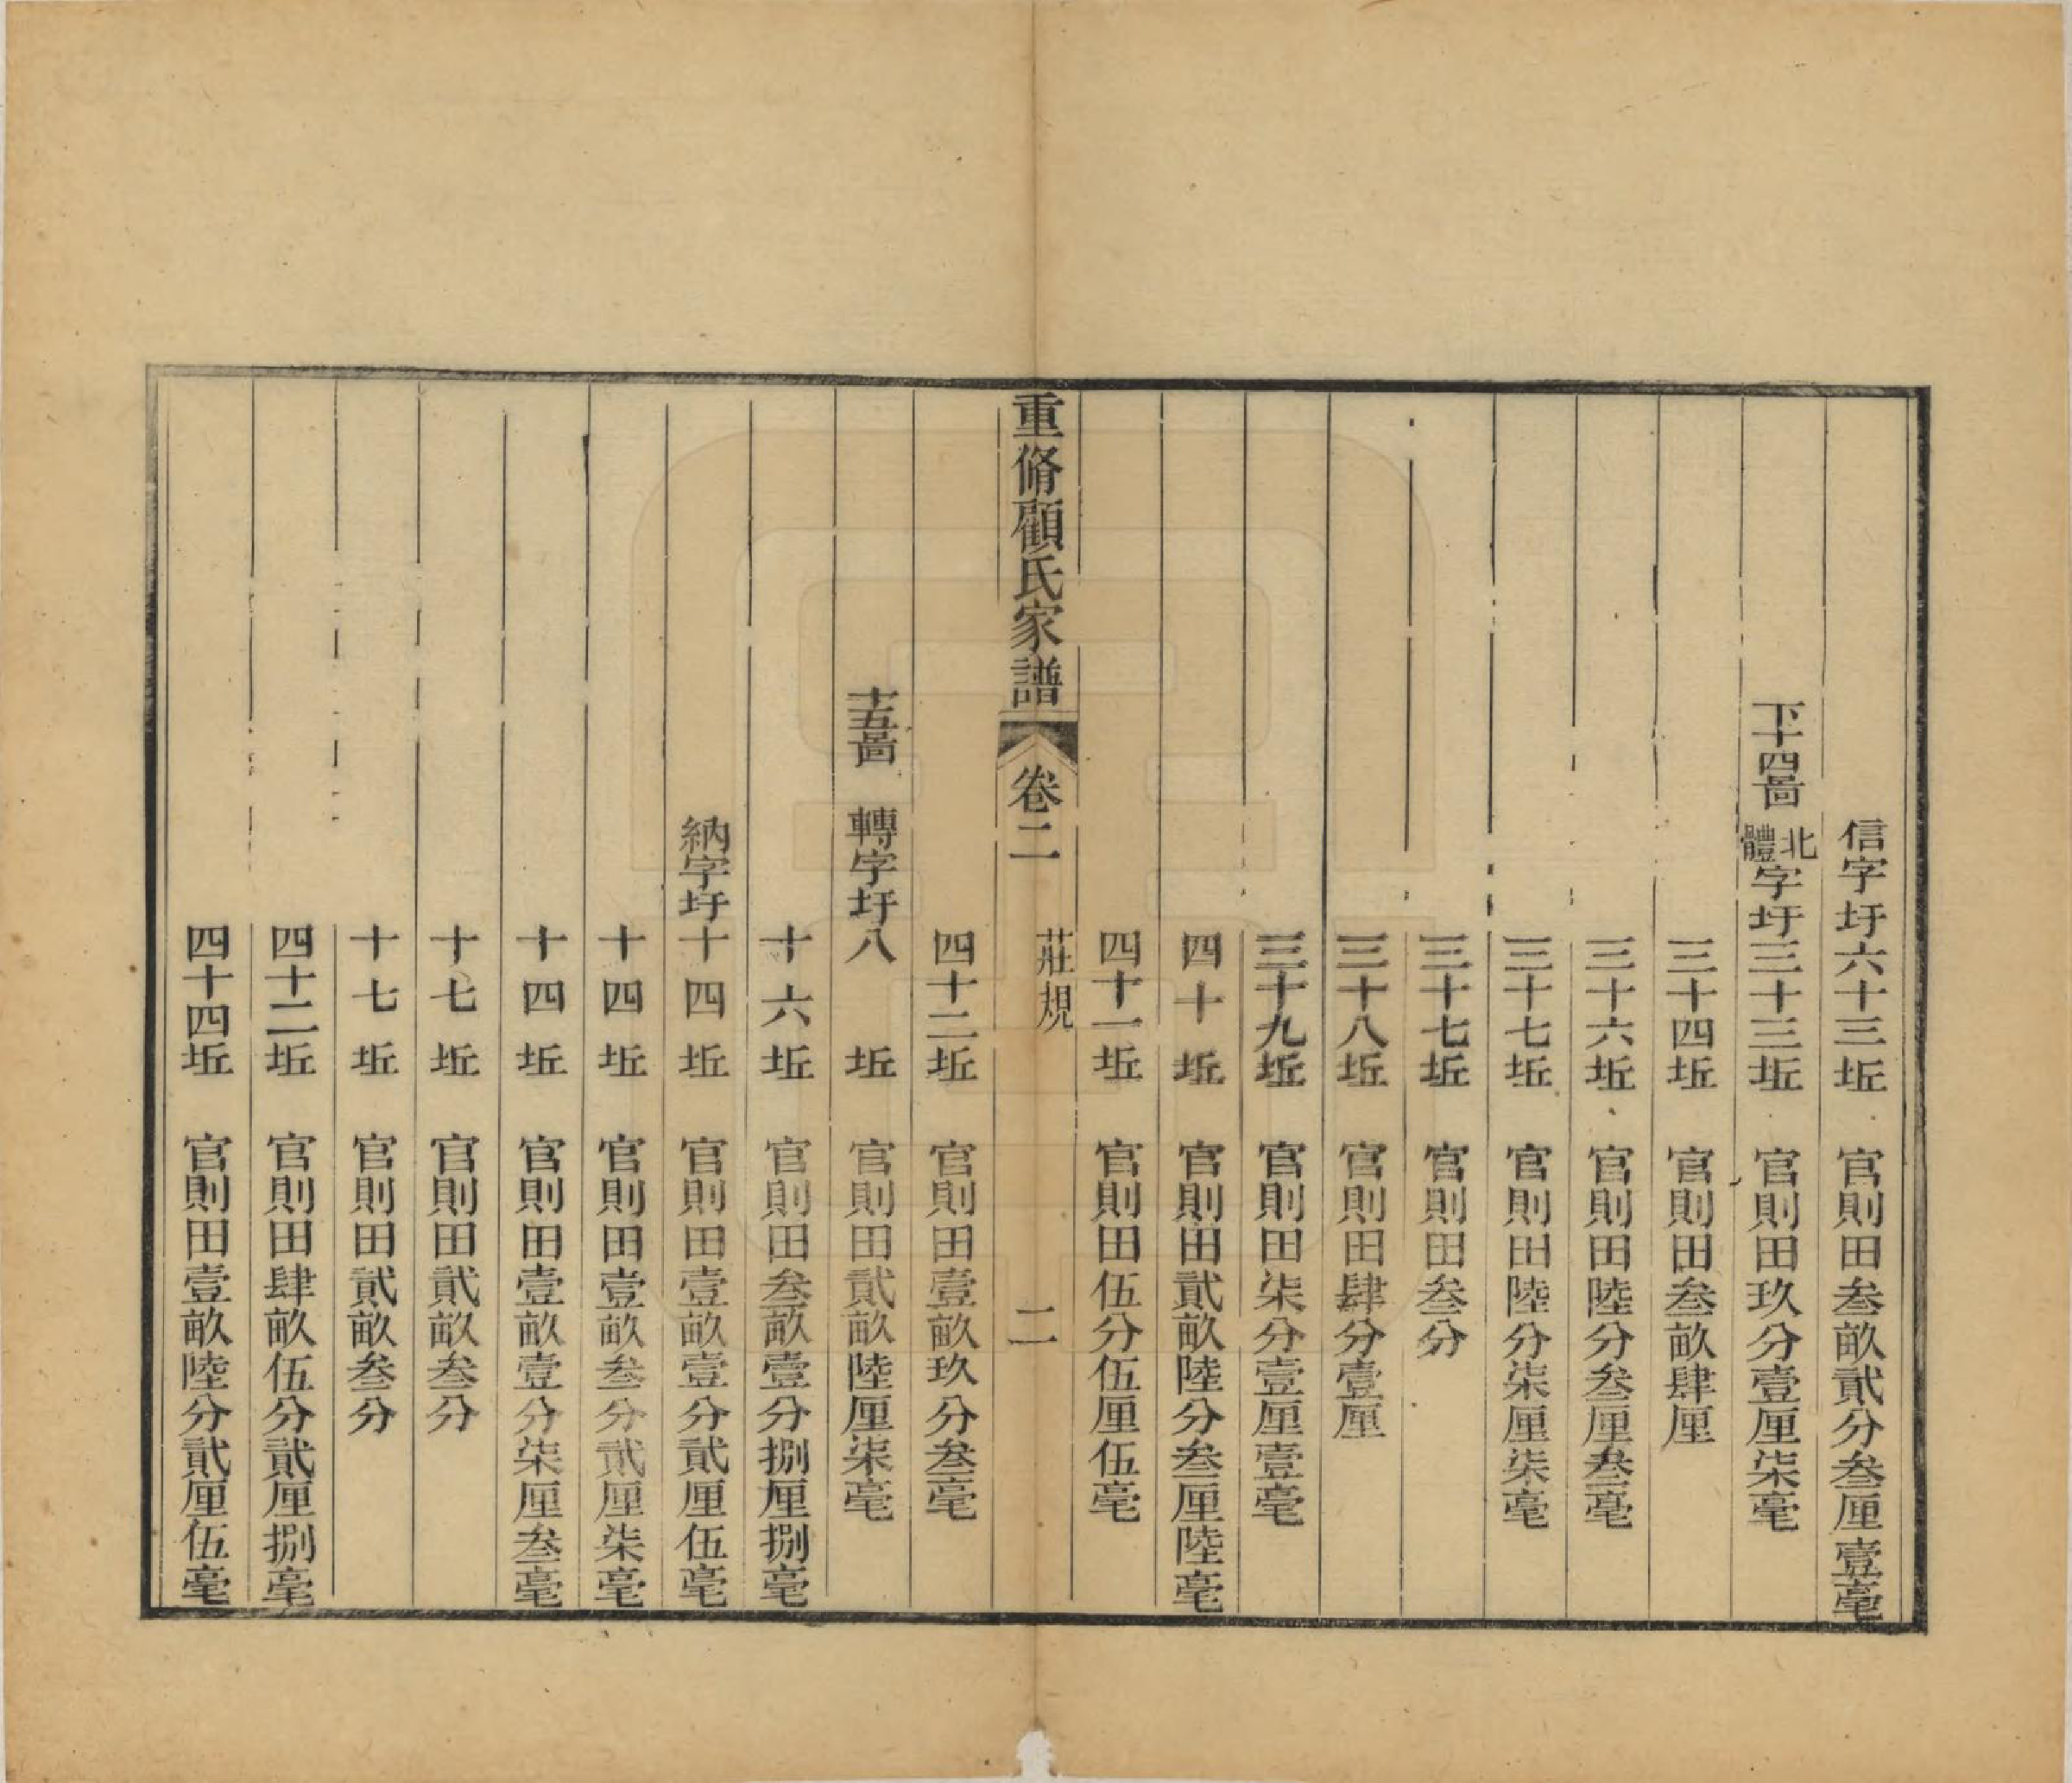 信字圩六十三坵　官則田叁畝貳分叁厘壹毫
下十四啚　北體字圩三十三坵　官則田玖分壹厘柒毫
三十四坵　官則田叁畝肆厘
三十六坵　官則田陸分叁厘叁毫
三十七坵　官則田陸分柒厘柒毫
三十七坵　官則田叁分
三十八坵　官則田肆分壹厘
三十九坵　官則田柒分壹厘壹毫
四十坵　官則田貳畝陸分叁厘陸毫
四十一坵　官則田伍分伍厘伍毫
重脩顧氏家譜　卷二　莊規　二
四十二坵　官則田壹畝玖分叁毫
十五啚　轉字圩八坵　官則田貳畝陸厘柒毫
十六坵　官則田叁畝壹分捌厘捌毫
納字圩十四坵　官則田壹畝壹分貳厘伍毫
十四坵　官則田壹畝叁分貳厘柒毫
十四坵　官則田壹畝壹分柒厘叁毫
十七坵　官則田貳畝叁分
十七坵　官則田貳畝叁分
四十二坵　官則田肆畝伍分貳厘捌毫
四十四坵　官則田壹畝陸分貳厘伍毫